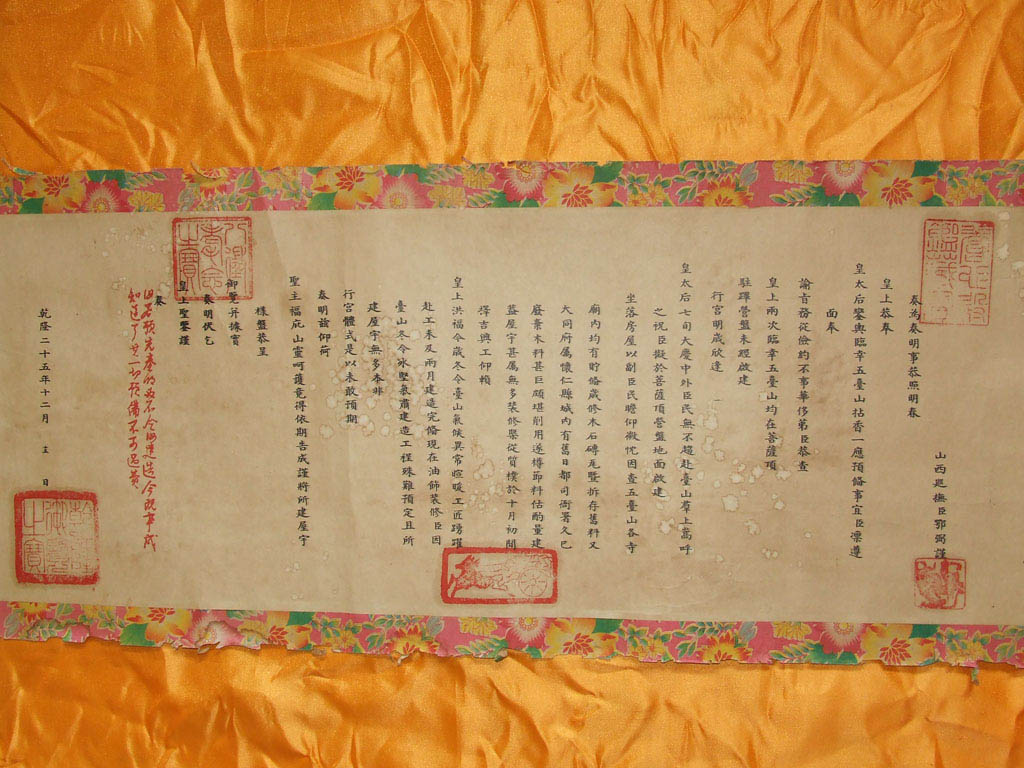 山西巡撫臣鄂弼謹
奏為奏明事恭照明春
皇上恭奉
皇太后鑾輿臨幸五臺山拈香一應預備事宜臣凛遵
面奉
諭旨務從儉約不事華侈第臣恭查
皇上兩次臨幸五臺山均在菩薩頂
駐蹕營盤未經啟建
行宮明歲欣逢
皇太后七旬大慶中外臣民無不趨赴臺山羣上嵩呼
之祝臣擬於菩薩頂營盤地面啟建
坐落房屋以副臣民瞻仰微忱因查五臺山各寺
廟內均有貯備歲修木石磚瓦暨拆存舊料又
大同府属懷仁縣城內有舊日都司衙署久已
廢棄木料甚巨頗堪剒用遂樽節料估酌量建
蓋屋宇甚属無多裝修槩從質樸於十月初間
擇吉興工仰賴
皇上洪福今歲冬令臺山氣候異常暄暖工匠踴躍
赴工未及兩月建造完備現在油飾裝修臣因
臺山冬令冰堅裹肅建造工程殊難預定且所
建屋宇無多本非
行宮體式是以未敢預期
奏明茲仰荷
聖主福庇山靈呵護竟得依期告成謹將所建屋宇
樣盤恭呈
御覽并據實
奏明伏乞
皇上聖鑒謹
奏
知道了
乾隆二十五年十二月 十三 日